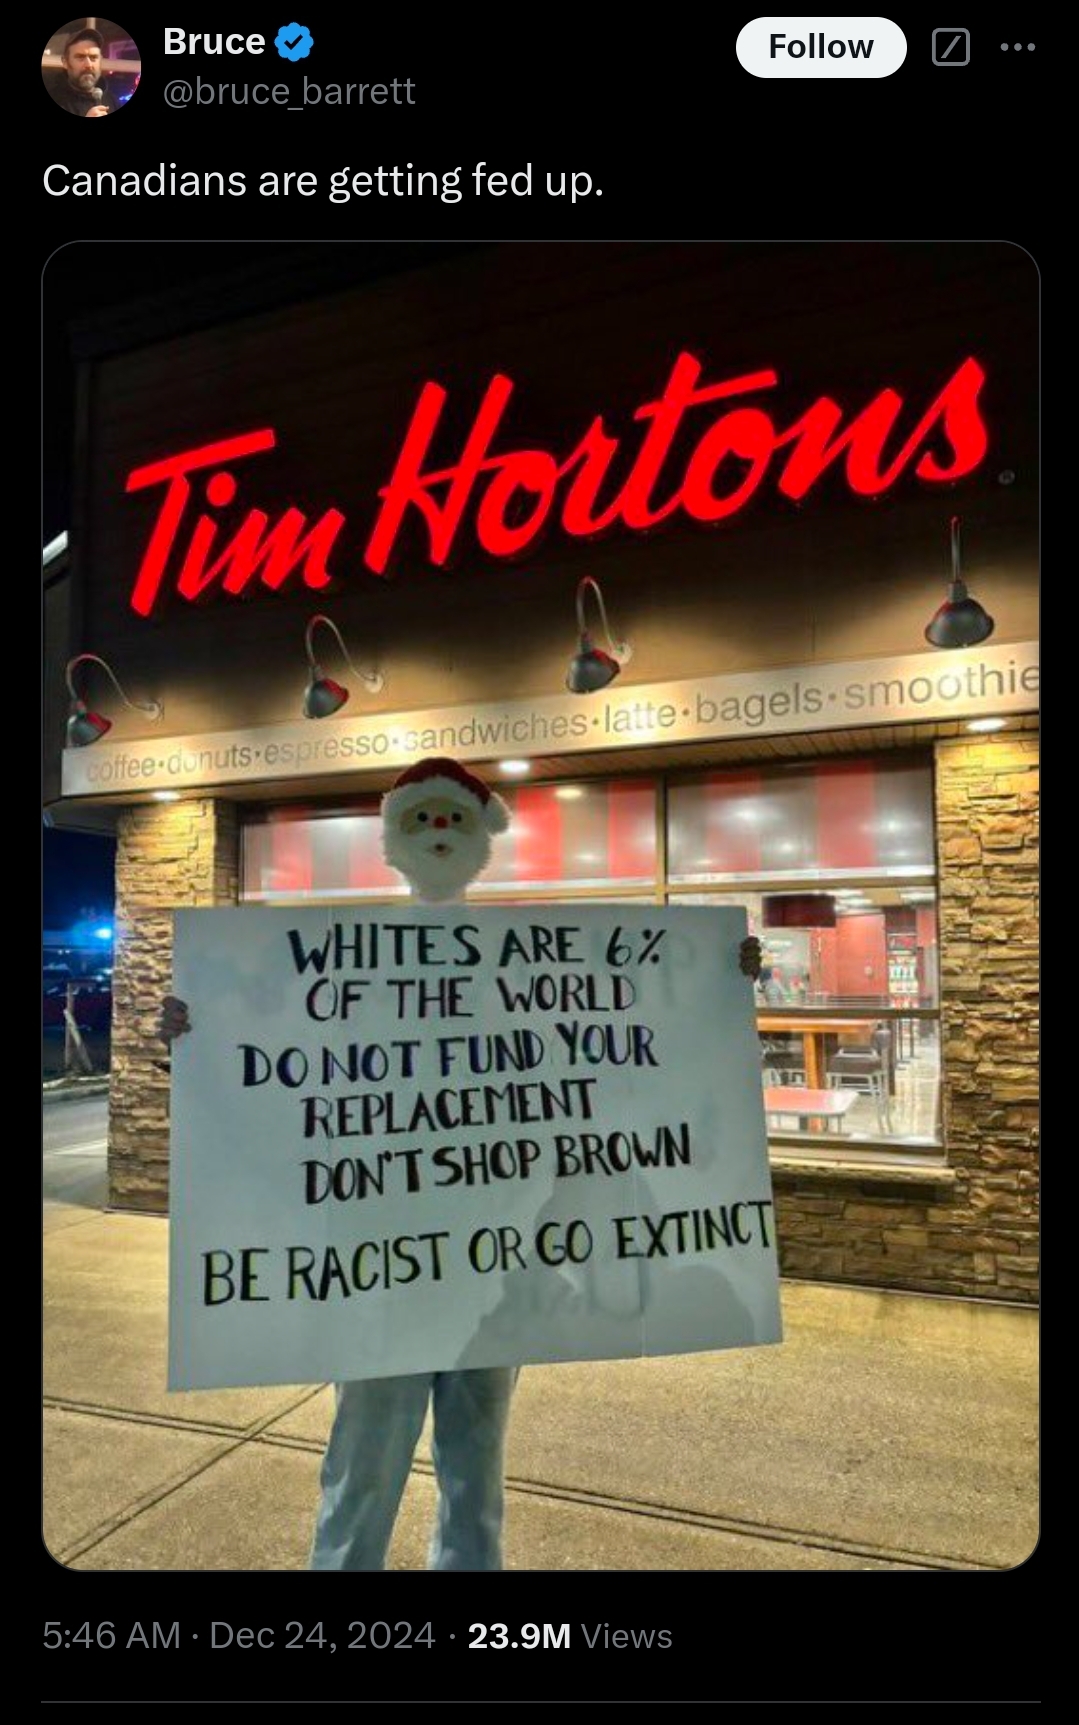 Bruce
@bruce_barrett
Follow
Canadians are getting fed up.
Tim Hortons
coffee·donuts·espresso·sandwiches·latte·bagels·smoothie
WHITES ARE 6%
OF THE WORLD
DO NOT FUND YOUR
REPLACEMENT
DON'T SHOP BROWN
BE RACIST OR GO EXTINCT
5:46 AM · Dec 24, 2024 · 23.9M Views